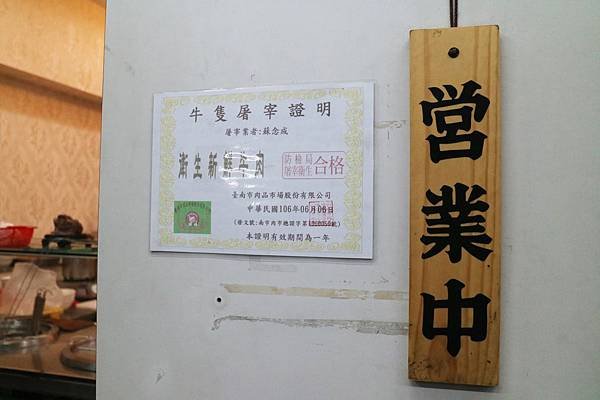 牛隻屠宰證明
屠宰業者:蘇念成
衛生新鮮牛肉
防檢局
屠宰衛生
合格
臺南市肉品市場股份有限公司
中華民國106年06月06日
本證明有效期間為一年
営業中